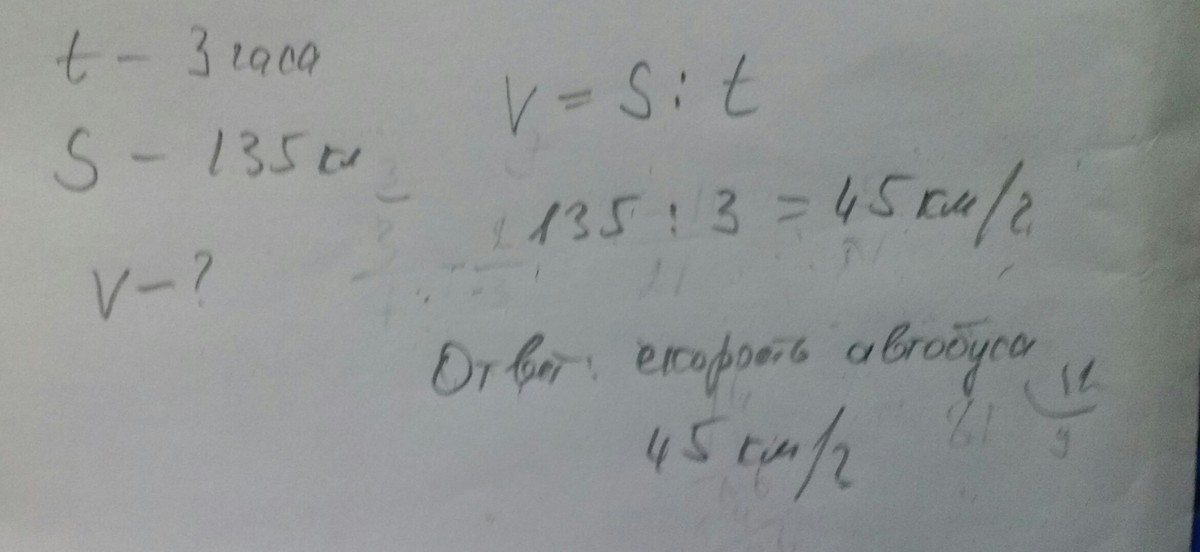 t - 3 часа
S - 135 км
V - ?
V = S : t
135 : 3 = 45 км/ч
Ответ: скорость автобуса
45 км/ч